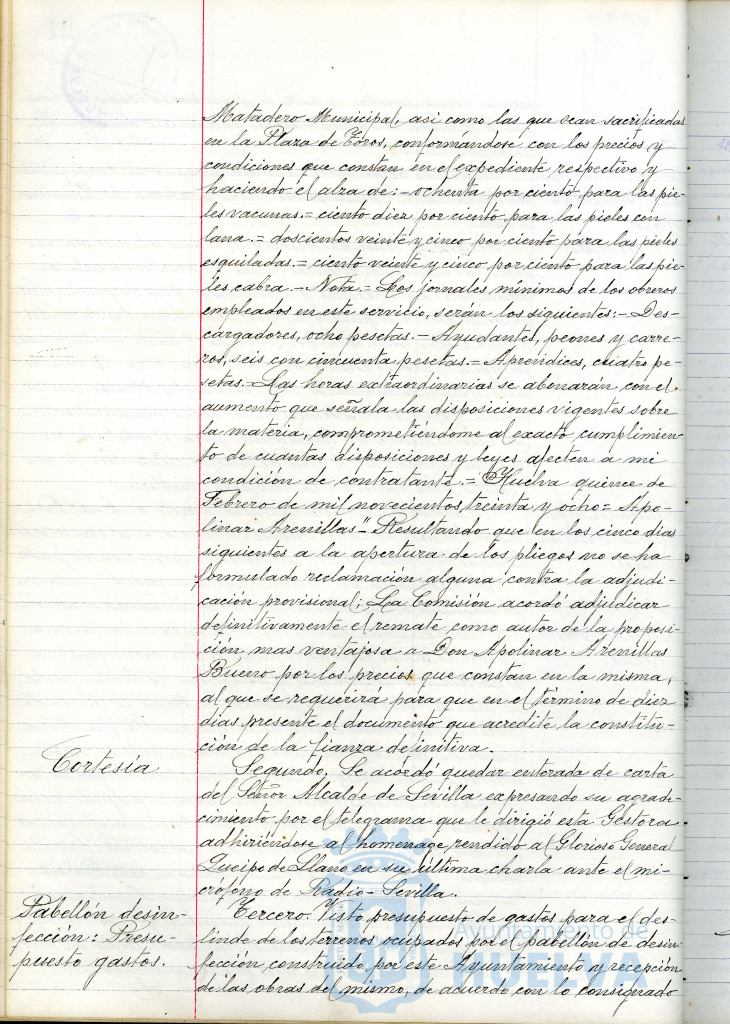 Matadero Municipal, asi como las que sean sacrificadas
en la Plaza de Toros, conformándose con los precios y
condiciones que constan en el expediente respectivo y
haciendo el alza de: - ochenta por ciento para las pie-
les vacunas. = ciento diez por ciento para las pieles con
lana. = doscientos veinte y cinco por ciento para las pieles
esquiladas. = ciento veinte y cinco por ciento para las pie-
les cabra. - Nota. = Los jornales mínimos de los obreros
empleados en este servicio, serán los siguientes: - Des-
cargadores, ocho pesetas. - Ayudantes, peones y carre-
ros, seis con cincuenta pesetas. = Aprendices, cuatro pe-
setas. = Las horas extraordinarias se abonarán con el
aumento que señala las disposiciones vigentes sobre
la materia, comprometiéndome al exacto cumplimien-
to de cuantas disposiciones y leyes afecten a mi
condición de contratante. = Huelva quince de
Febrero de mil novecientos treinta y ocho = Apo-
linar Arenillas" - Resultando que en los cinco dias
siguientes a la apertura de los pliegos no se ha
formulado reclamación alguna contra la adjudi-
cación provisional; La Comisión acordó adjudicar
definitivamente el remate como autor de la proposi-
ción mas ventajosa a Don Apolinar Arenillas
Bueno por los precios que constan en la misma,
al que se requerirá para que en el término de diez
dias presente el documento que acredite la constitu-
ción de la fianza definitiva.
Cortesía
Segundo. Se acordó quedar enterada de carta
del Señor Alcalde de Sevilla expresando su agrade-
cimiento por el telegrama que le dirigió esta Gestora
adhiriéndose al homenage rendido al Glorioso General
Queipo de Llano en su última charla ante el mi-
crófono de Radio-Sevilla.
Pabellón desin-
fección: Presu-
puesto gastos.
Tercero. Visto presupuesto de gastos para el des-
linde de los terrenos ocupados por el pabellón de desin-
fección construido por este Ayuntamiento y recepción
de las obras del mismo, de acuerdo con lo consignado
Ayuntamiento de
HUELVA